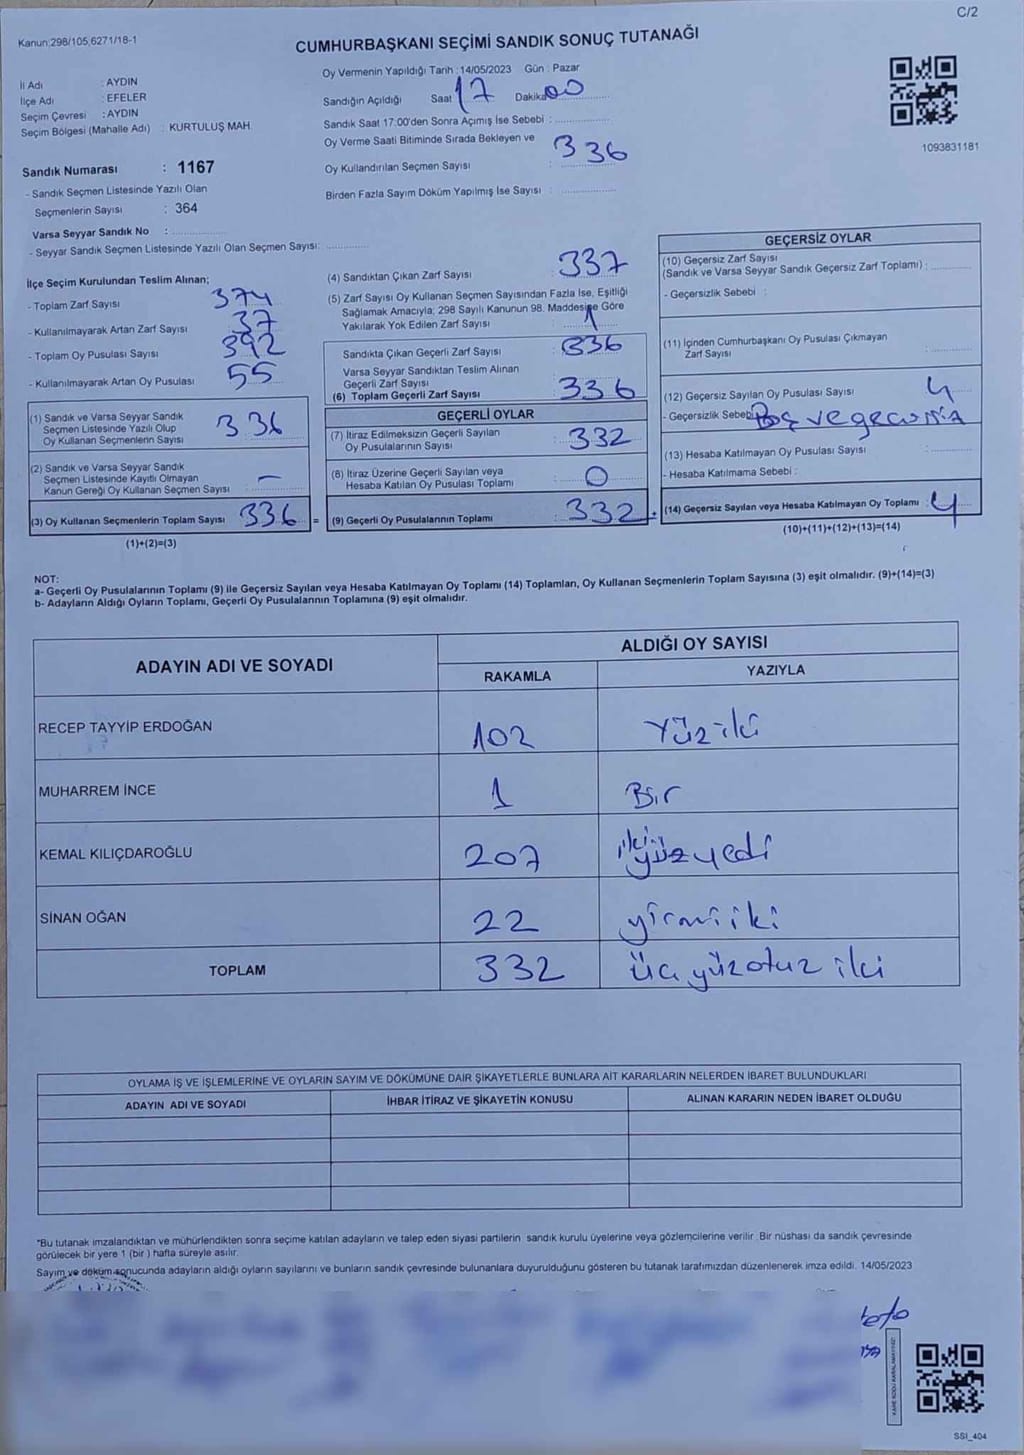 C/2
Kanun;298/105,6271/18-1
CUMHURBAŞKANI SEÇİMİ SANDIK SONUÇ TUTANAĞI
İl Adı : AYDIN
İlçe Adı : EFELER
Seçim Çevresi : AYDIN
Seçim Bölgesi (Mahalle Adı) : KURTULUŞ MAH.
Oy Vermenin Yapıldığı Tarih : 14/05/2023 Gün : Pazar
Sandığın Açıldığı Saat 17 Dakika 00
Sandık Saat 17:00'den Sonra Açımış İse Sebebi :
Oy Verme Saati Bitiminde Sırada Bekleyen ve
Oy Kullandırılan Seçmen Sayısı : 336
Birden Fazla Sayım Döküm Yapılmış İse Sayısı :
1093831181
Sandık Numarası : 1167
- Sandık Seçmen Listesinde Yazılı Olan
Seçmenlerin Sayısı : 364
Varsa Seyyar Sandık No :
- Seyyar Sandık Seçmen Listesinde Yazılı Olan Seçmen Sayısı:
İlçe Seçim Kurulundan Teslim Alınan;
- Toplam Zarf Sayısı : 374
- Kullanılmayarak Artan Zarf Sayısı : 37
- Toplam Oy Pusulası Sayısı : 392
- Kullanılmayarak Artan Oy Pusulası : 55
(1) Sandık ve Varsa Seyyar Sandık
Seçmen Listesinde Yazılı Olup
Oy Kullanan Seçmenlerin Sayısı : 336
(2) Sandık ve Varsa Seyyar Sandık
Seçmen Listesinde Kayıtlı Olmayan
Kanun Gereği Oy Kullanan Seçmen Sayısı : -
(3) Oy Kullanan Seçmenlerin Toplam Sayısı : 336 =
(1)+(2)=(3)
(4) Sandıktan Çıkan Zarf Sayısı : 337
(5) Zarf Sayısı Oy Kullanan Seçmen Sayısından Fazla İse, Eşitliği
Sağlamak Amacıyla; 298 Sayılı Kanunun 98. Maddesine Göre
Yakılarak Yok Edilen Zarf Sayısı : 1
Sandıkta Çıkan Geçerli Zarf Sayısı : 336
Varsa Seyyar Sandıktan Teslim Alınan
Geçerli Zarf Sayısı :
(6) Toplam Geçerli Zarf Sayısı : 336
GEÇERLİ OYLAR
(7) İtiraz Edilmeksizin Geçerli Sayılan
Oy Pusulalarının Sayısı : 332
(8) İtiraz Üzerine Geçerli Sayılan veya
Hesaba Katılan Oy Pusulası Toplamı : 0
(9) Geçerli Oy Pusulalarının Toplamı : 332 +
GEÇERSİZ OYLAR
(10) Geçersiz Zarf Sayısı
(Sandık ve Varsa Seyyar Sandık Geçersiz Zarf Toplamı) :
- Geçersizlik Sebebi :
(11) İçinden Cumhurbaşkanı Oy Pusulası Çıkmayan
Zarf Sayısı :
(12) Geçersiz Sayılan Oy Pusulası Sayısı : 4
- Geçersizlik Sebebi : Boş ve
(13) Hesaba Katılmayan Oy Pusulası Sayısı :
- Hesaba Katılmama Sebebi :
(14) Geçersiz Sayılan veya Hesaba Katılmayan Oy Toplamı : 4
(10)+(11)+(12)+(13)=(14)
NOT:
a- Geçerli Oy Pusulalarının Toplamı (9) ile Geçersiz Sayılan veya Hesaba Katılmayan Oy Toplamı (14) Toplamları, Oy Kullanan Seçmenlerin Toplam Sayısına (3) eşit olmalıdır. (9)+(14)=(3)
b- Adayların Aldığı Oyların Toplamı, Geçerli Oy Pusulalarının Toplamına (9) eşit olmalıdır.
ADAYIN ADI VE SOYADI
ALDIĞI OY SAYISI
RAKAMLA YAZIYLA
RECEP TAYYİP ERDOĞAN 102 Yüz iki
MUHARREM İNCE 1 Bir
KEMAL KILIÇDAROĞLU 207 iki yüz yedi
SİNAN OĞAN 22 yirmi iki
TOPLAM 332 üç yüz otuz iki
OYLAMA İŞ VE İŞLEMLERİNE VE OYLARIN SAYIM VE DÖKÜMÜNE DAİR ŞİKAYETLERLE BUNLARA AİT KARARLARIN NELERDEN İBARET BULUNDUKLARI
ADAYIN ADI VE SOYADI İHBAR İTİRAZ VE ŞİKAYETİN KONUSU ALINAN KARARIN NEDEN İBARET OLDUĞU
"Bu tutanak imzalandıktan ve mühürlendikten sonra seçime katılan adayların ve talep eden siyasi partilerin sandık kurulu üyelerine veya gözlemcilerine verilir. Bir nüshası da sandık çevresinde
görülecek bir yere 1 (bir ) hafta süreyle asılır.
Sayım ve döküm sonucunda adayların aldığı oyların sayılarını ve bunların sandık çevresinde bulunanlara duyurulduğunu gösteren bu tutanak tarafımızdan düzenlenerek imza edildi. 14/05/2023
SSI_404